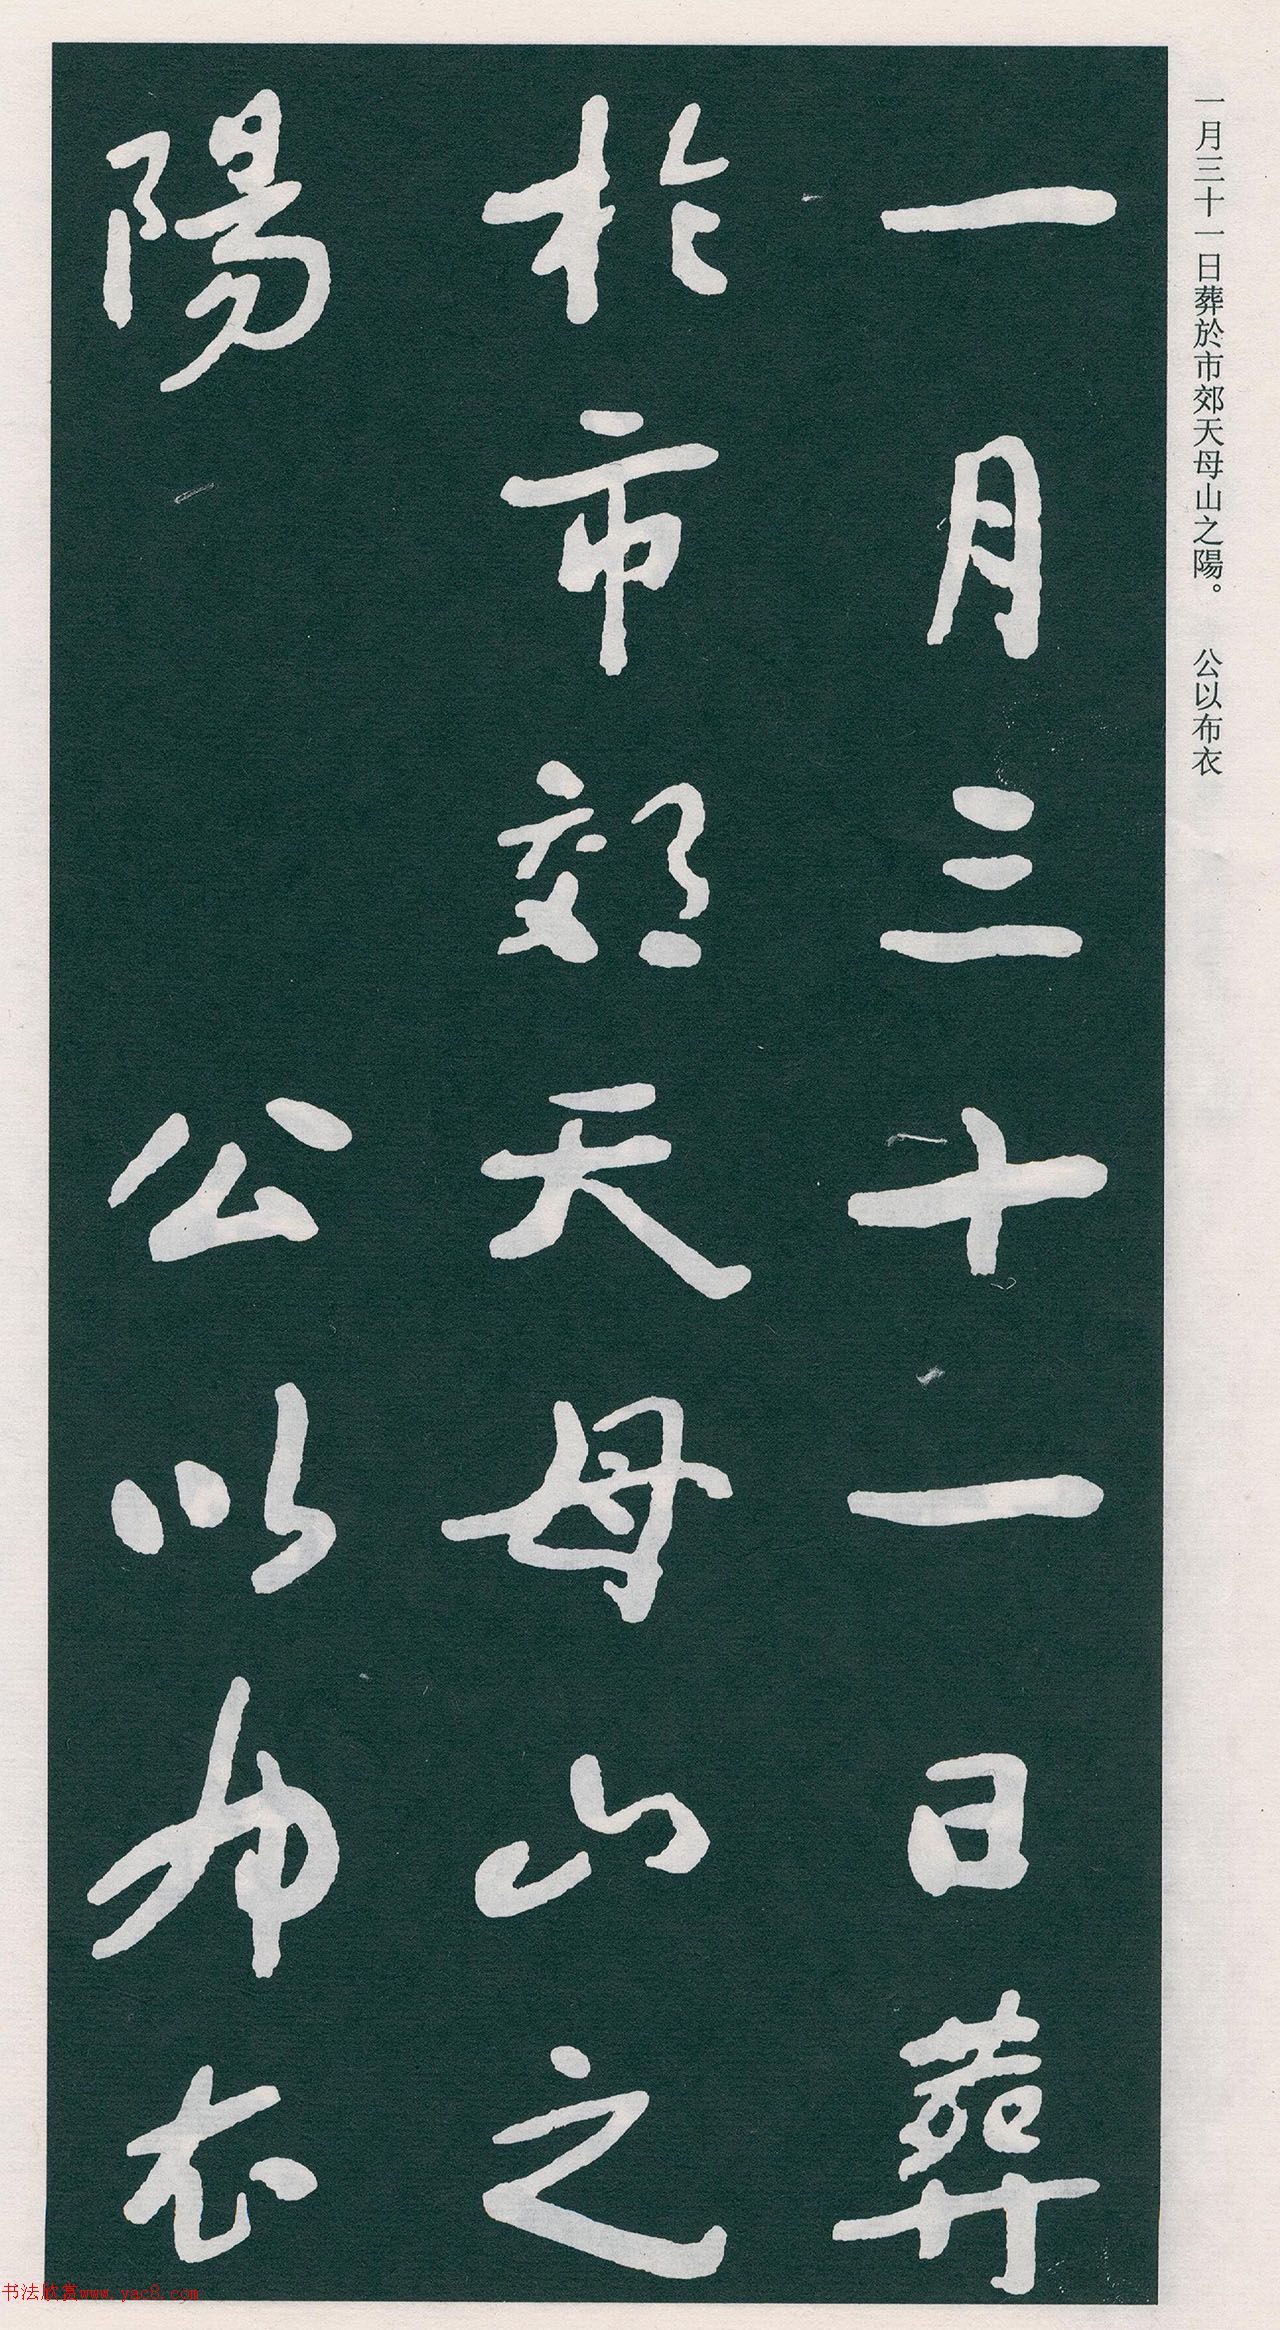 一月三十一日葬於市郊天母山之陽。 公以布衣
一月三十一日葬
於市郊天母山之
陽 公以布衣
书法欣赏www.yac8.com